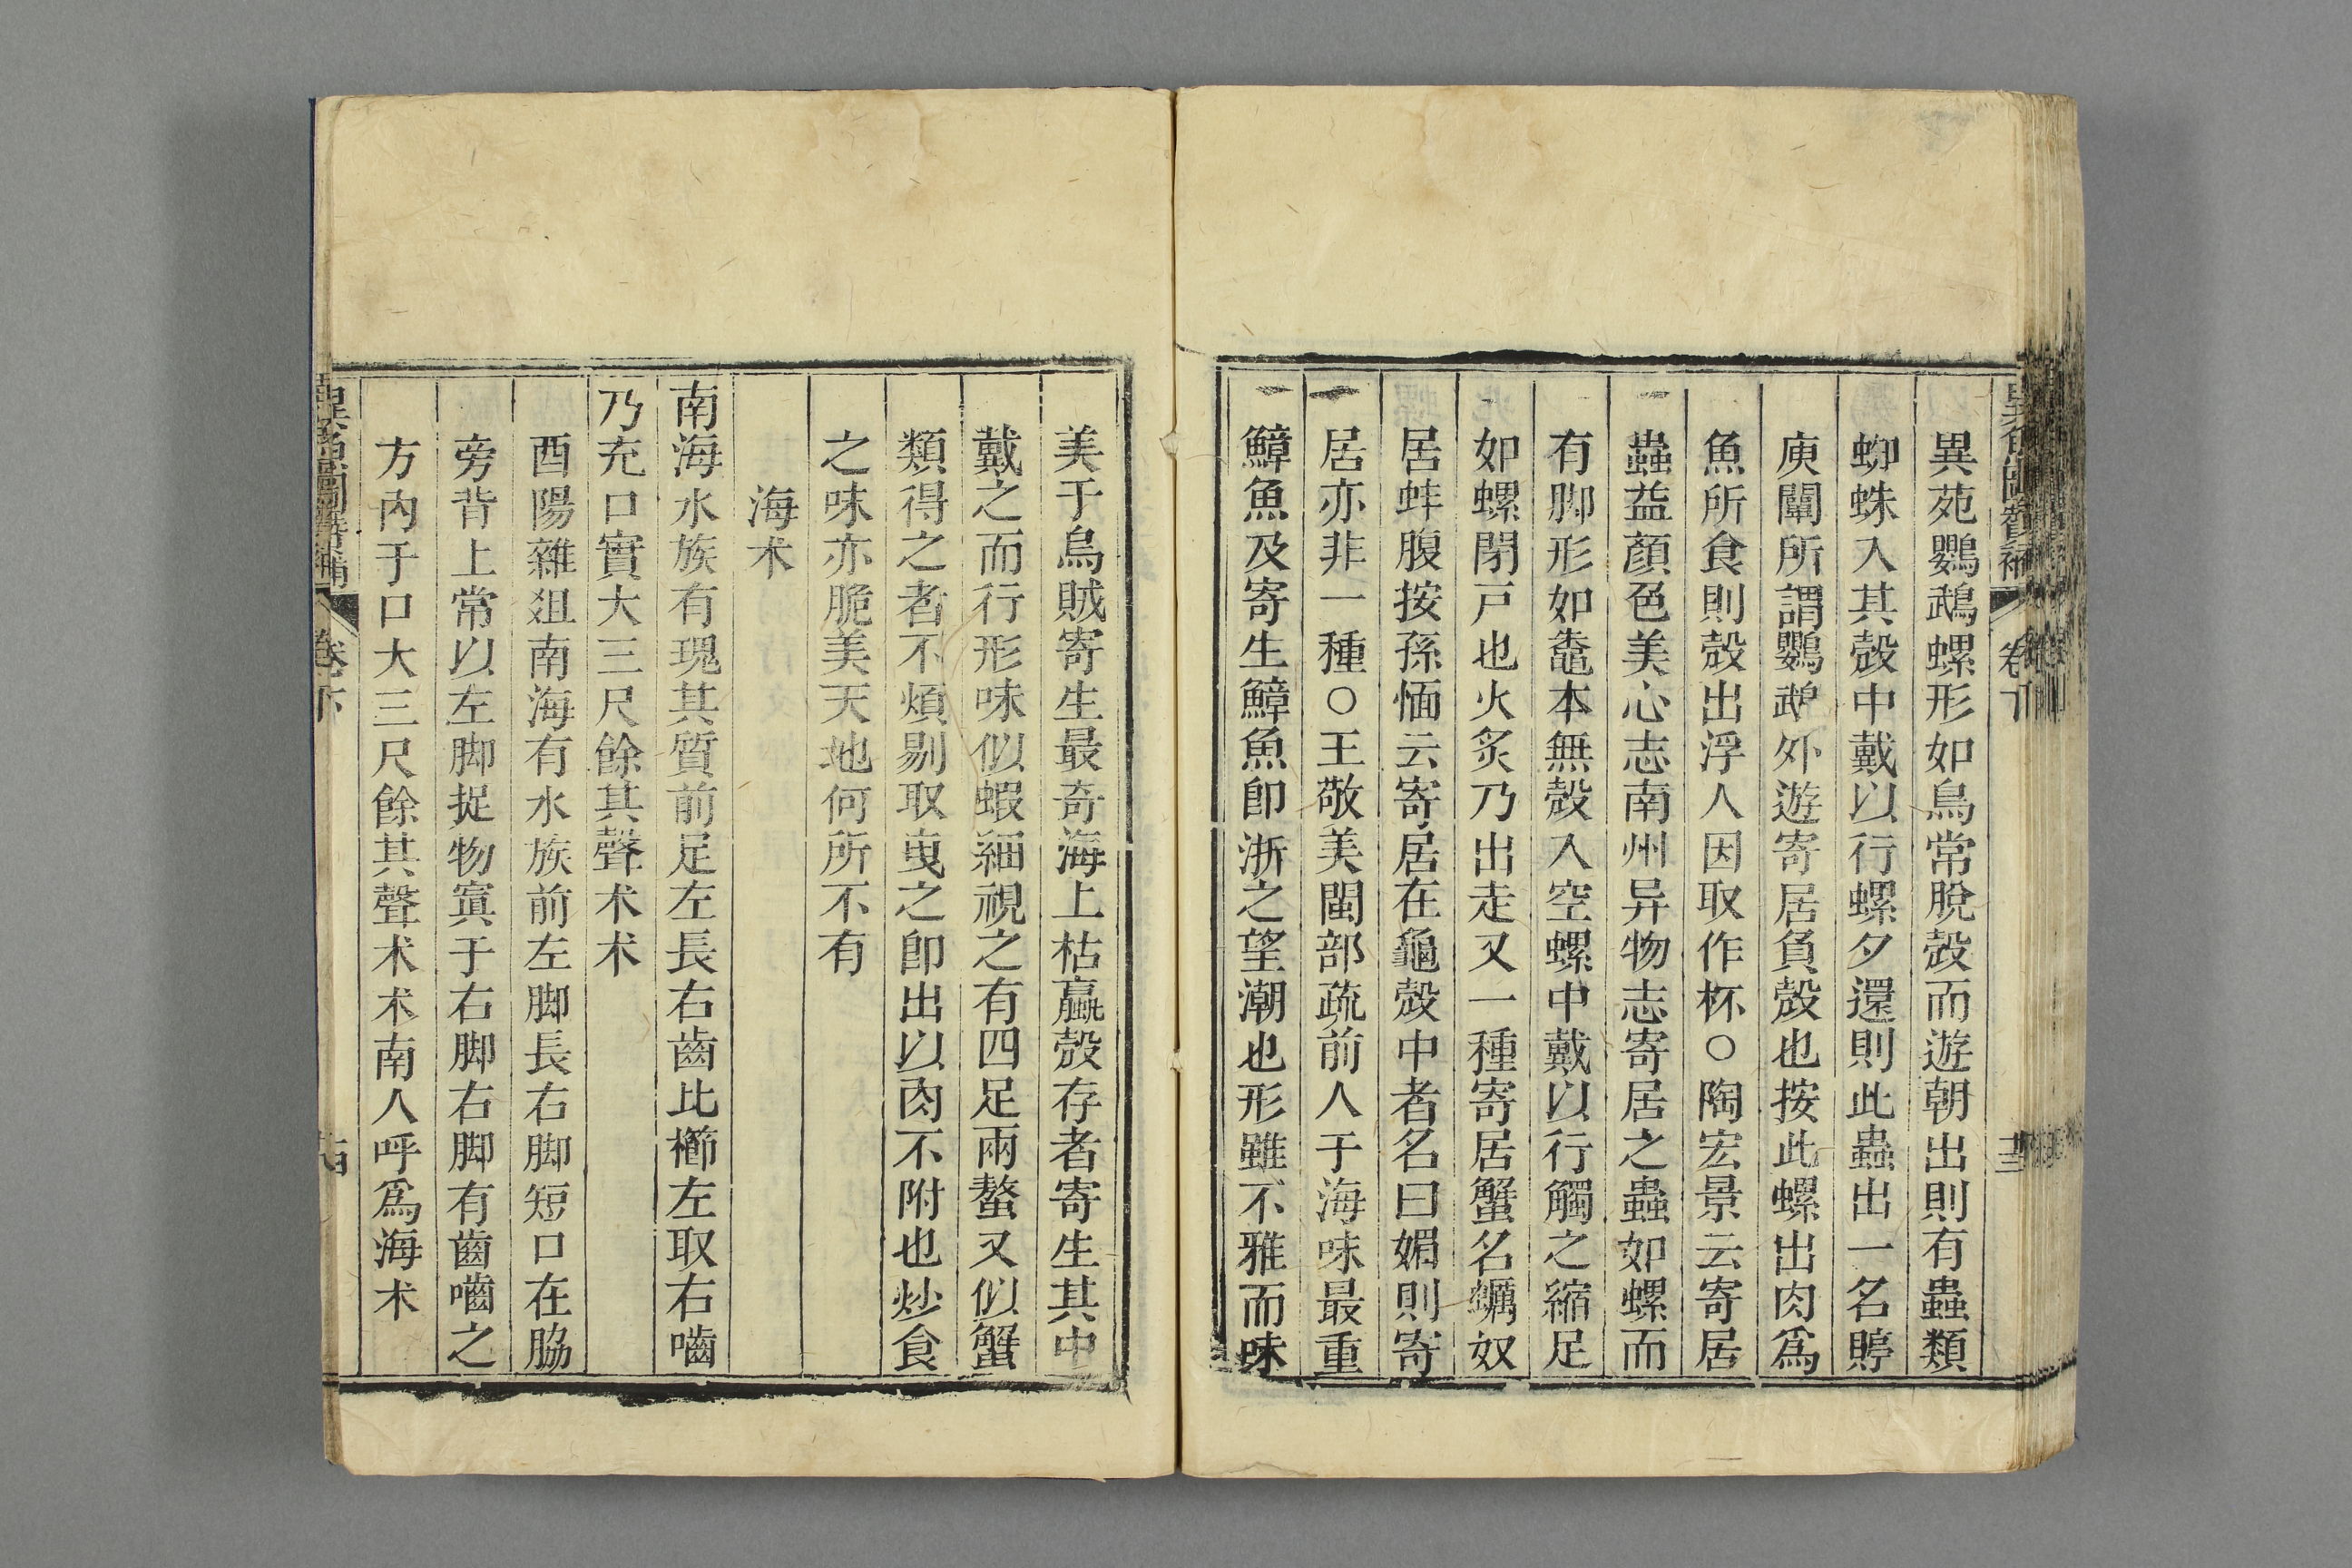 異魚圖贊補 卷下 十三
異苑鸚鵡螺形如鳥常脫殼而遊朝出則有蟲類
蜘蛛入其殼中戴以行螺夕還則此蟲出一名䗒
庾闡所謂鸚鵡外遊寄居負殼也按此螺出肉爲
魚所食則殼出浮人因取作杯○陶宏景云寄居
蟲益顏色美心志南州异物志寄居之蟲如螺而
有脚形如鼄本無殼入空螺中戴以行觸之縮足
如螺閉戸也火炙乃出走又一種寄居蟹名蠣奴
居蚌腹按孫愐云寄居在龜殼中者名曰媚則寄
居亦非一種○王敬美閩部疏前人于海味最重
鱆魚及寄生鱆魚卽浙之望潮也形雖不雅而味
美于烏賊寄生最奇海上枯蠃殼存者寄生其中
戴之而行形味似蝦細視之有四足兩螯又似蟹
類得之者不煩剔取曳之卽出以肉不附也炒食
之味亦脆美天地何所不有
海术
南海水族有瑰其質前足左長右齒比櫛左取右嚙
乃充口實大三尺餘其聲术术
酉陽雜俎南海有水族前左脚長右脚短口在脇
旁背上常以左脚捉物寘于右脚右脚有齒嚙之
方內于口大三尺餘其聲术术南人呼爲海术
異魚圖贊補 卷下 十四